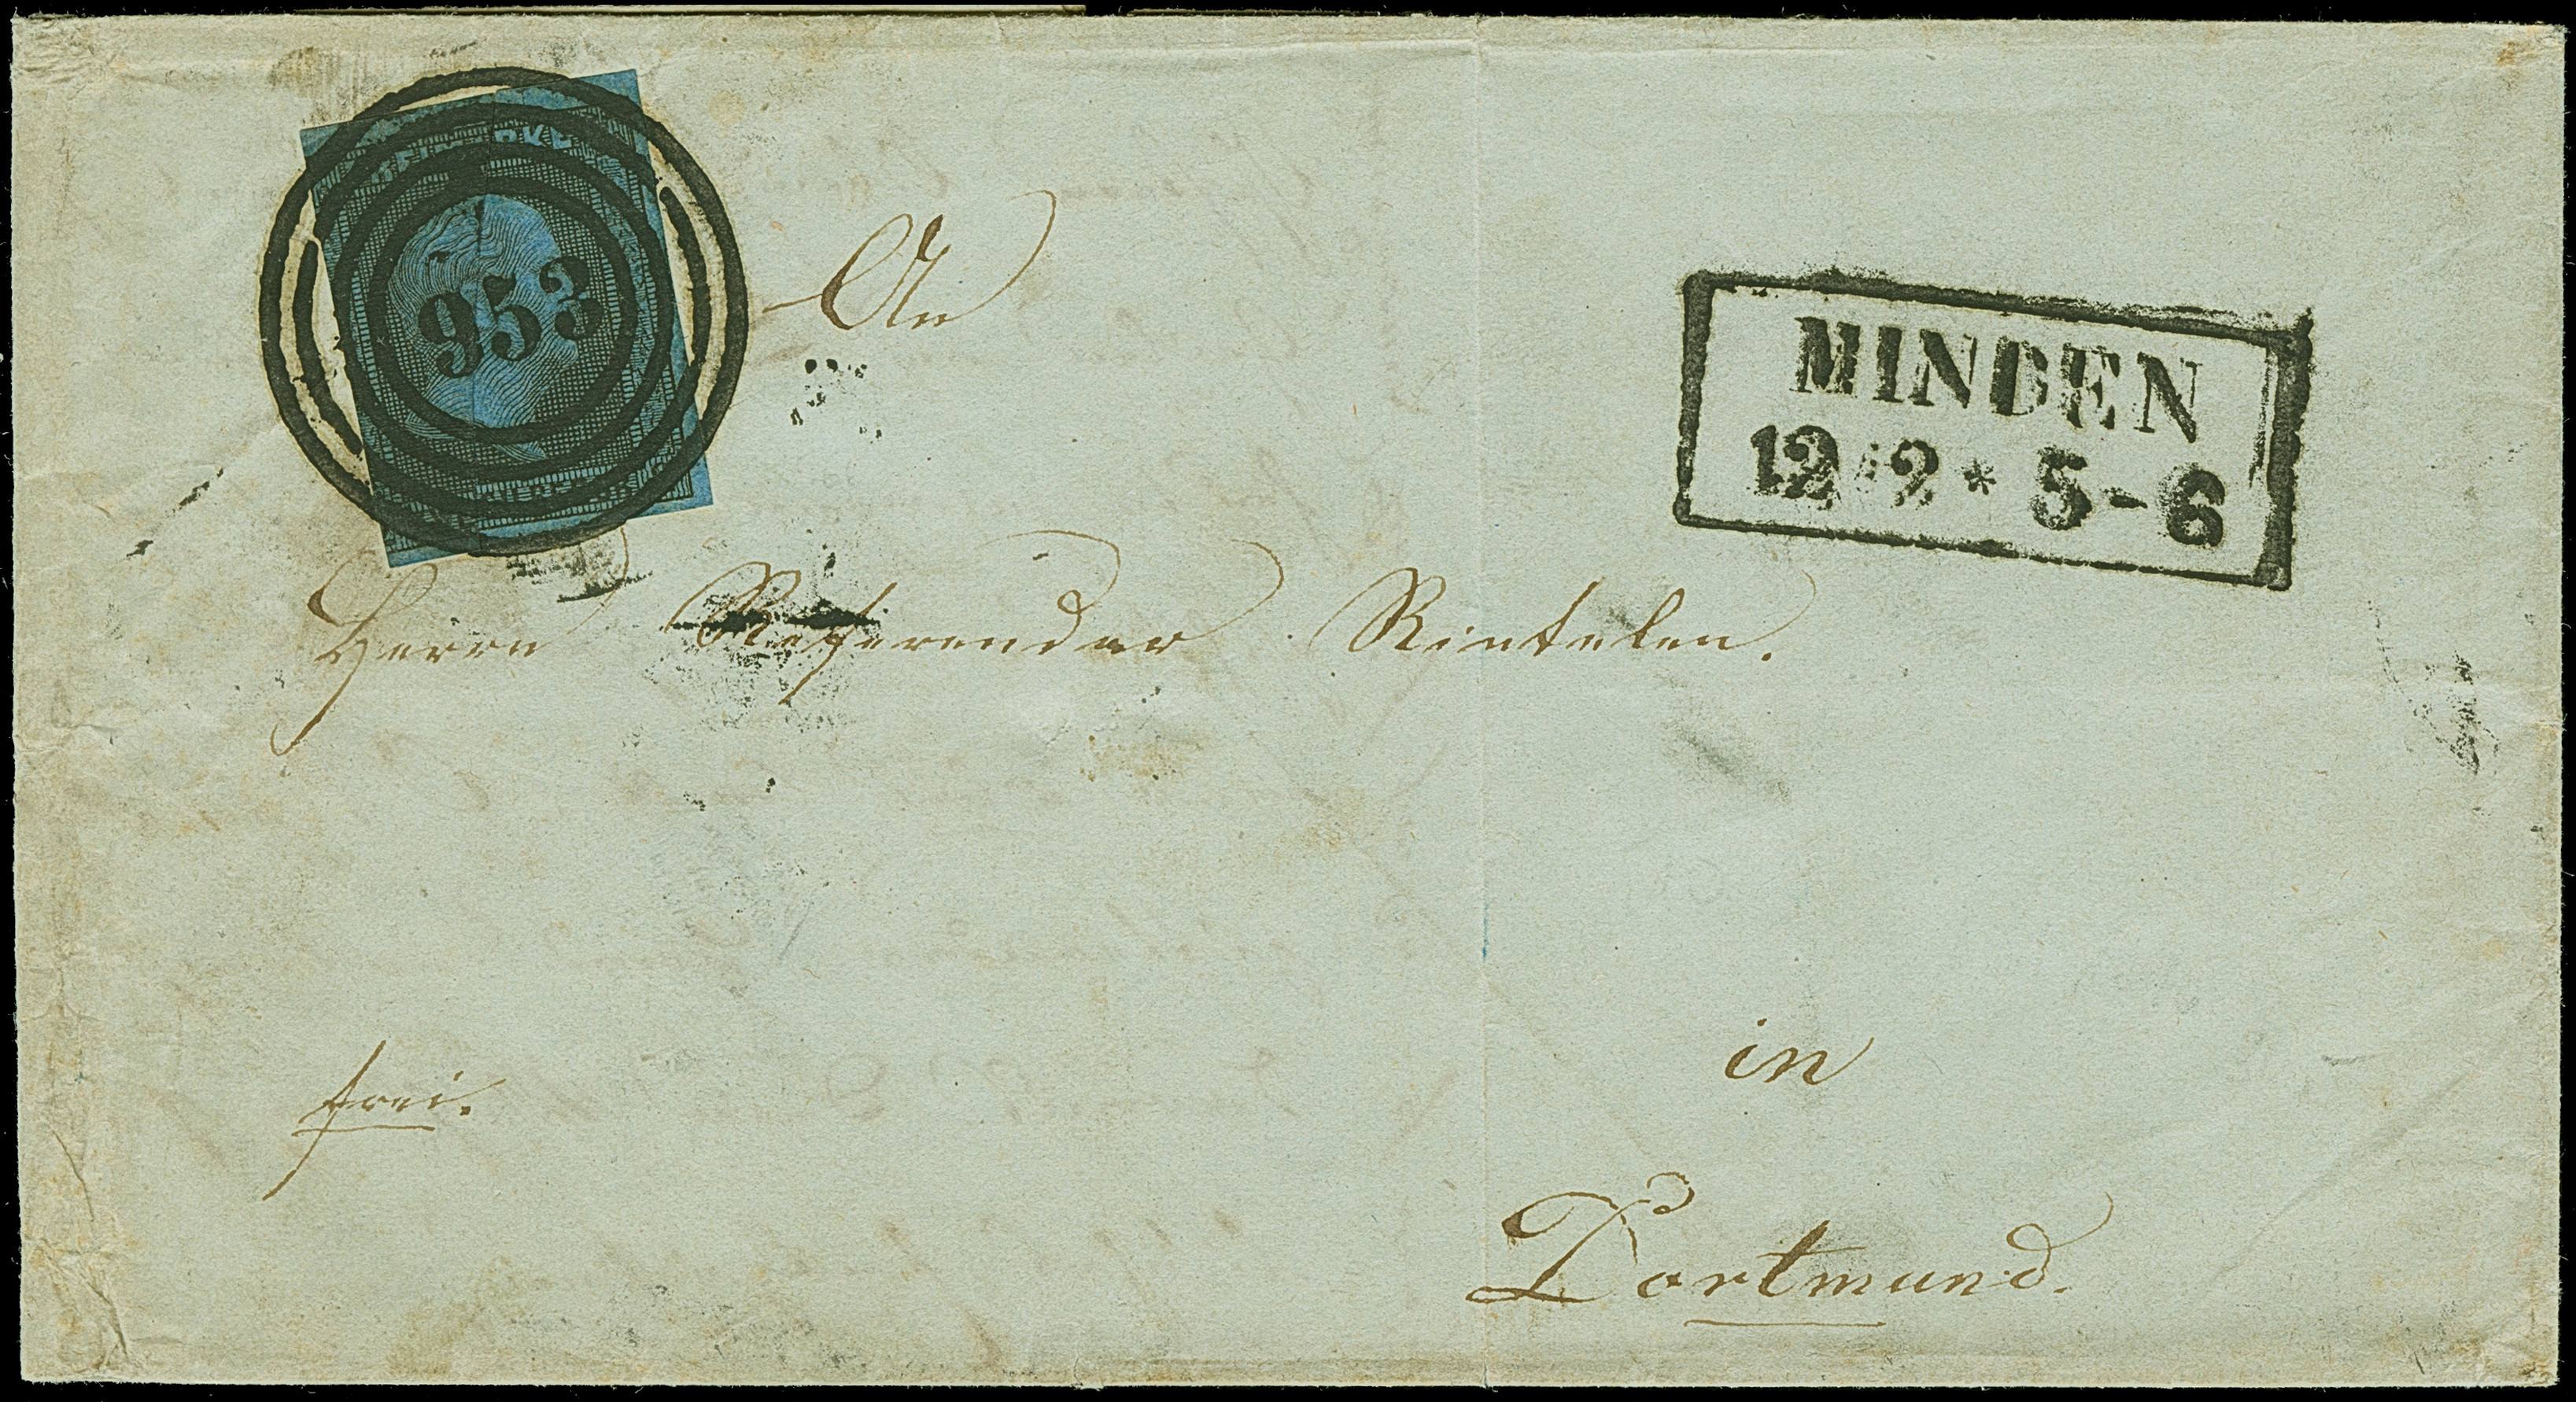 FREIMARKE
953
An
MINDEN
12 2 * 5-6
Herrn Referendar Rintelen.
frei.
in
Dortmund.